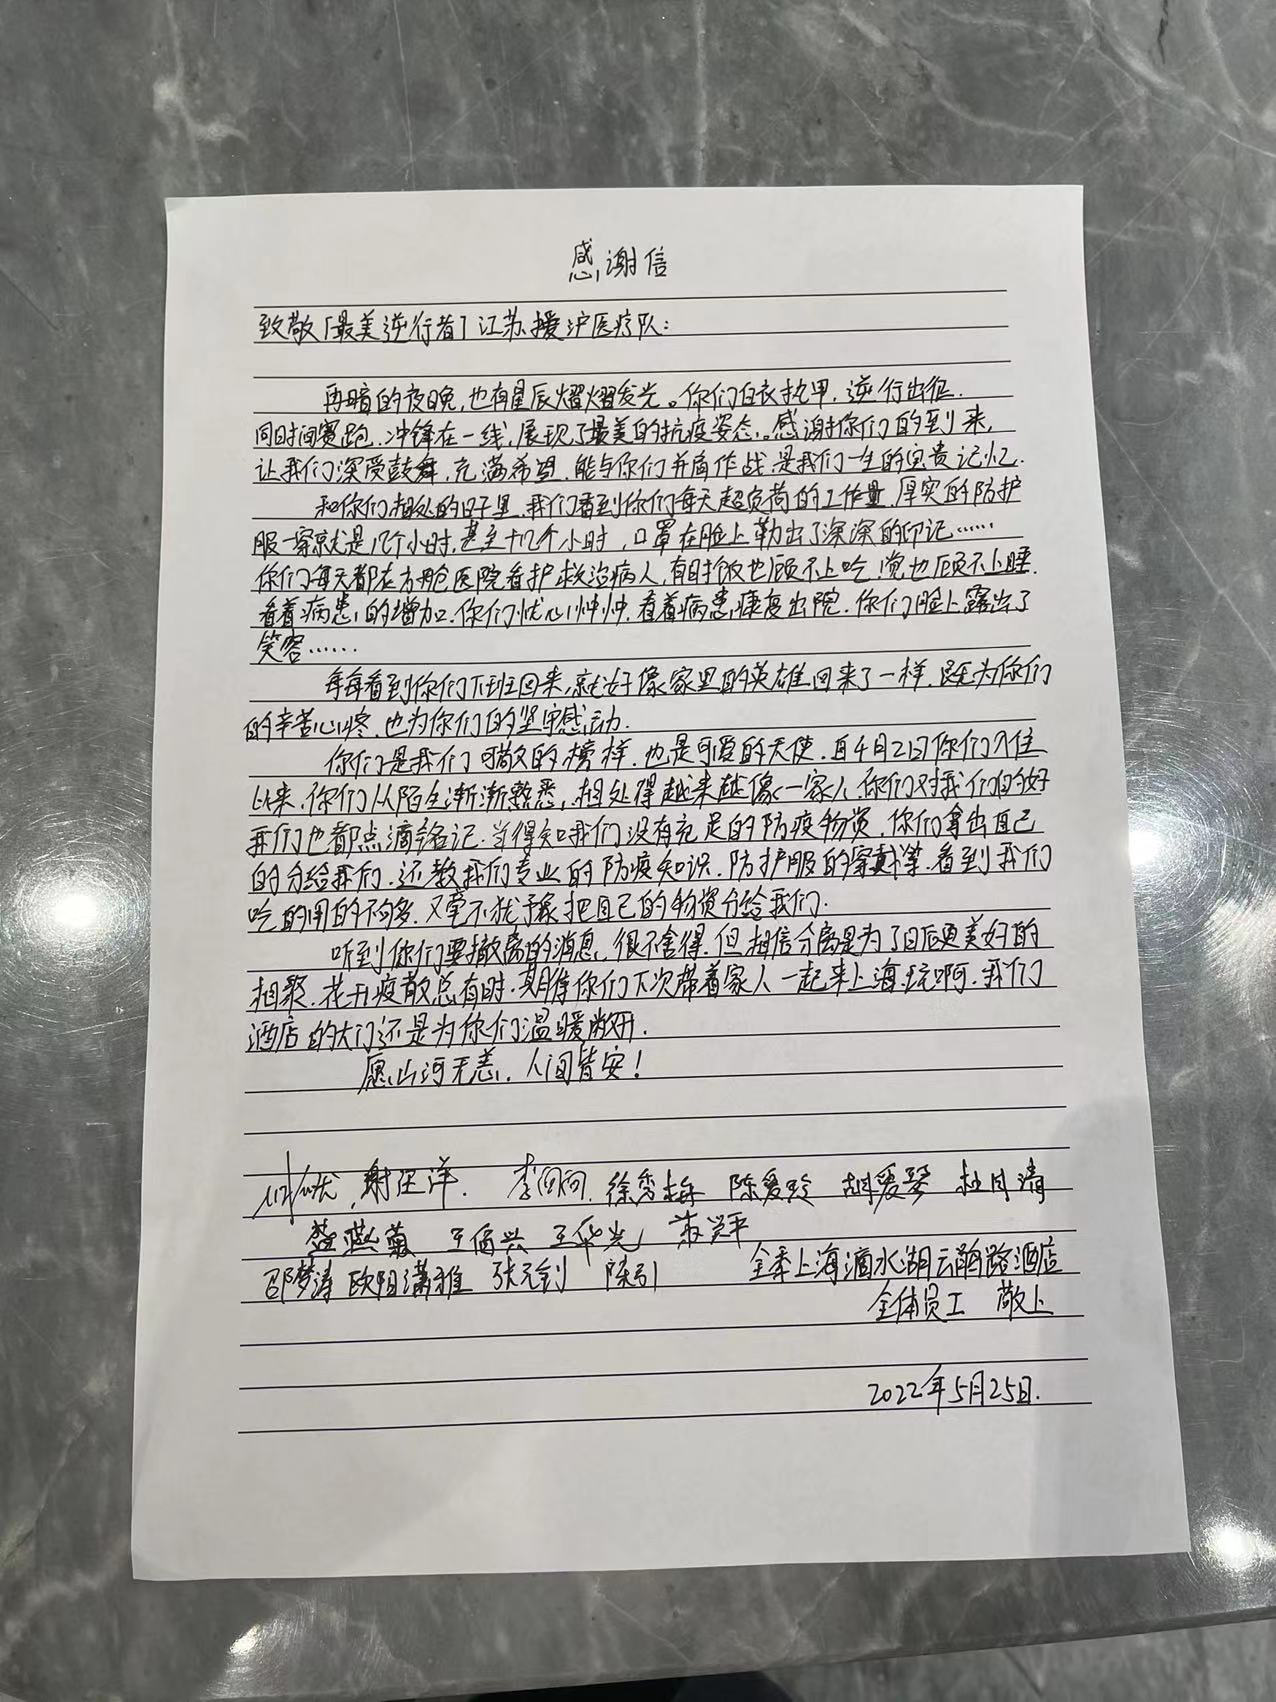 感谢信
致敬「最美逆行者」江苏援沪医疗队：
再暗的夜晚，也有星辰熠熠发光。你们白衣执甲，逆行出征.
同时间赛跑.冲锋在一线,展现了最美的抗疫姿态。感谢你们的到来,
让我们深受鼓舞,充满希望.能与你们并肩作战.是我们一生的宝贵记忆.
和你们相处的日子里.我们看到你们每天超负荷的工作量.厚实的防护
服一穿就是几个小时,甚至十几个小时,口罩在脸上勒出了深深的印记……
你们每天都在方舱医院看护救治病人,有时饭也顾不上吃.觉也顾不上睡.
看着病患的增加.你们忧心忡忡.看着病患康复出院.你们脸上露出了
笑容……
每每看到你们下班回来,就好像家里的英雄回来了一样.既为你们
的辛苦心疼.也为你们的坚守感动.
你们是我们可敬的榜样.也是可爱的天使.自4月2日你们入住
以来.你们从陌生渐渐熟悉,相处得越来越像一家人.你们对我们的好
我们也都点滴铭记.当得知我们没有充足的防疫物资.你们拿出自己
的分给我们.还教我们专业的防疫知识.防护服的穿戴等.看到我们
吃的用的不多.又毫不犹豫把自己的物资分给我们.
听到你们要撤离的消息.很不舍得.但相信分离是为了日后更美好的
相聚.花开疫散总有时.期待你们下次带着家人一起来上海玩啊.我们
酒店的大门还是为你们温暖敞开.
愿山河无恙.人间皆安!
李阿 徐秀梅 陈爱玲 胡爱琴 杜月清
燕菊 王佰兴 王华光
邵梦涛 欧阳潇雅 张元钊 陈弘 全季上海滴水湖云鹃路酒店
全体员工 敬上
2022年5月25日.